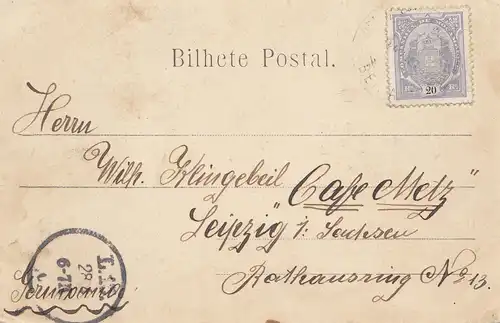 Bilhete Postal.
20
Herrn
Wilh. Klingebeil "Cafe Metz"
Leipzig i/. Sachsen
Rathausring No 13.
L.
28
6-7
Germania